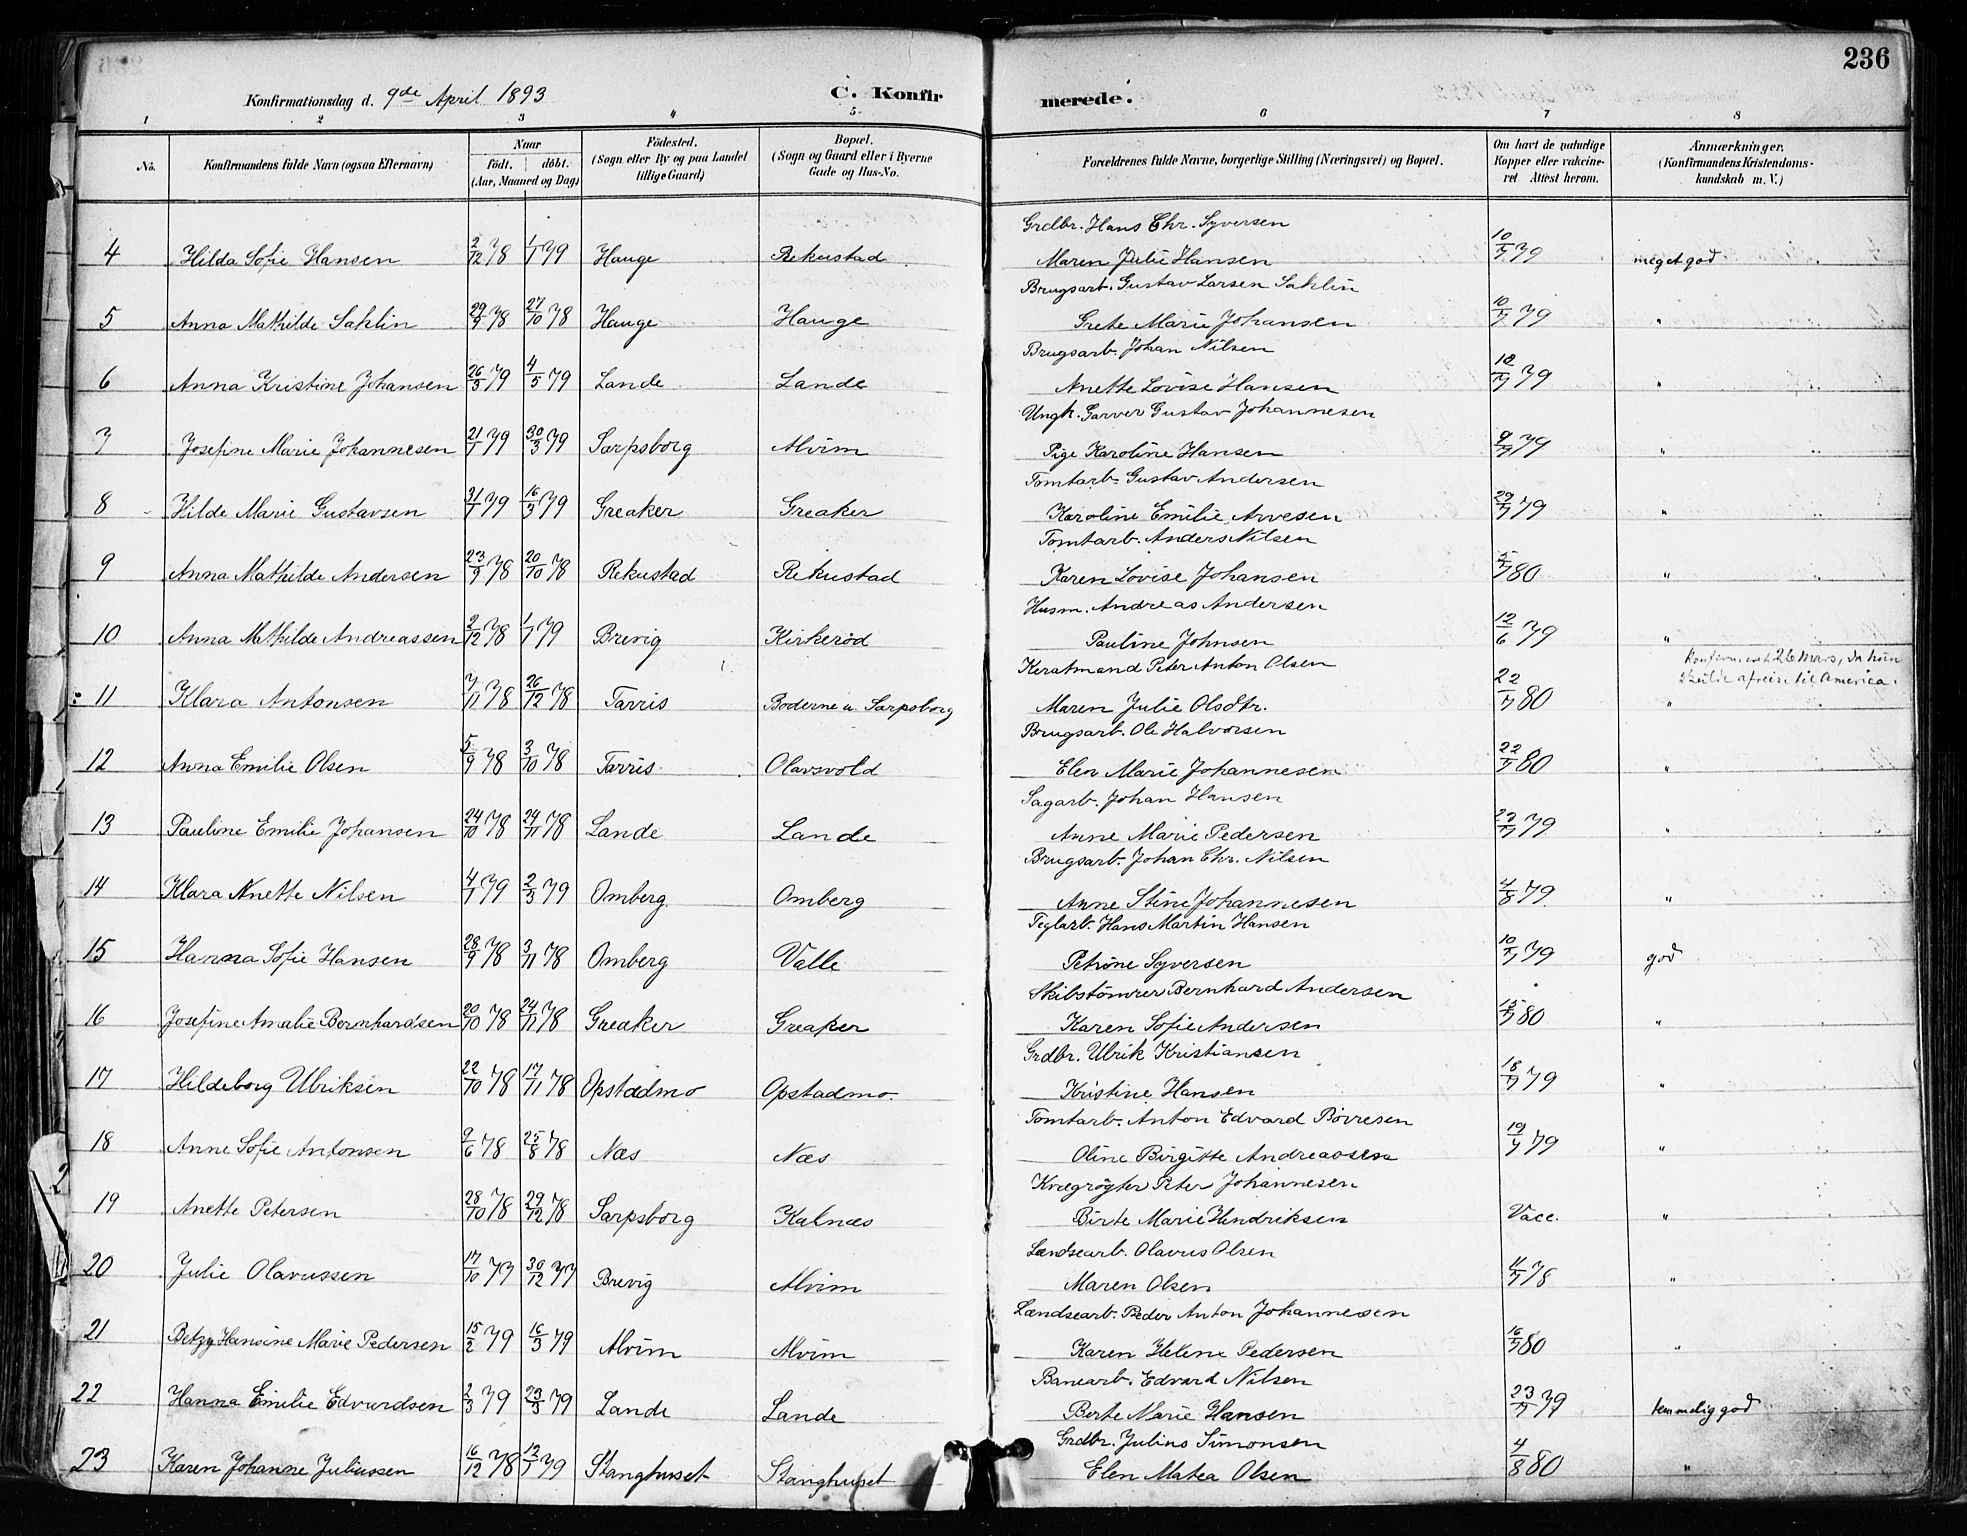 236
Konfirmationsdag d. 9de April 1893 C. Konfirmerede.
1 2 3 4 5 6 7 8
No. Konfirmandens fulde Navn (ogsaa Efternavn) Naar født. døbt. (Aar, Maaned og Dag) Födested. (Sogn eller By og paa Landet tillige Gaard) Bopæl. (Sogn og Gaard eller i Byerne Gade og Hus-No. Forældrenes fulde Navne, borgerlige Stilling (Næringsvei) og Bopæl. Om havt de naturlige Kopper eller vakcineret Attest herom. Anmærkninger. (Konfirmandens Kristendomskundskab m. V.)
Grdbr. Hans Chr. Syversen
4 Hilda Sofie Hansen 2/12 78 1/1 79 Hauge Rekustad Maren Julie Hansen 10/7 79 meget god
Brugsarb. Gustav Larsen Sahlin
5 Anna Mathilde Sahlin 29/9 78 27/10 78 Hauge Hauge Grete Marie Johansen 10/7 79 "
Brugsarb. Johan Nilsen
6 Anna Kristine Johansen 26/3 79 4/5 79 Lande Lande Anette Lovise Hansen 18/7 79 "
Ungk. Garver Gustav Johannesen
7 Josefine Marie Johannesen 21/1 79 30/3 79 Sarpsborg Alvim Pige Karoline Hansen 9/7 79 "
Tomtarb. Gustav Andersen
8 Hilde Marie Gustavsen 31/1 79 16/3 79 Greaker Greaker Karoline Emilie Arvesen 29/7 79 "
Tomtarb. Anders Nilsen
9 Anna Mathilde Andersen 23/9 78 20/10 78 Rekustad Rekustad Karen Lovise Johansen 5/7 80 "
Husm. Andreas Andersen
10 Anna Mathilde Andreassen 2/12 78 1/1 79 Brevig Kirkerød Pauline Johnsen 12/6 79 "
Konfirmeret 26 Mars, da hun
Keratmand Peter Anton Olsen skulde afreise til America.
11 Klara Antonsen 7/11 78 26/12 78 Tarris Boderne u. Sarpsborg Maren Julie Olsdtr. 22/7 80 "
Brugsarb. Ole Halvorsen
12 Anna Emilie Olsen 5/9 78 3/10 78 Tarris Olavsvold Elen Marie Johannesen 22/7 80 "
Sagarb. Johan Hansen
13 Pauline Emilie Johansen 24/10 78 24/11 78 Lande Lande Anne Marie Pedersen 29/7 79 "
Brugsarb. Johan Chr. Nilsen
14 Klara Anette Nilsen 4/1 79 2/3 79 Omberg Omberg Anne Stine Johannesen 4/8 79 "
Teglarb. Hans Martin Hansen
15 Hanna Sofie Hansen 28/9 78 3/11 78 Omberg Valle Petrine Syversen 10/7 79 god
Skibstömrer Bernhard Andersen
16 Josefine Amalie Bernhardsen 20/10 78 24/11 78 Greaker Greaker Karen Sofie Andersen 15/7 80 "
Grdbr. Ulrik Kristiansen
17 Hildeborg Ulriksen 22/10 78 17/11 78 Opstadmo Opstadmo. Kristine Hansen 18/7 79 "
Tomtarb. Anton Edvard Børresen
18 Anne Sofie Antonsen 9/6 78 25/8 78 Næs Næs Oline Birgitte Andreassen 19/7 79 "
Kvægrögter Peter Johannesen
19 Anette Petersen 28/10 78 29/12 78 Sarpsborg Kalnæs Birte Marie Hendriksen Vacc. "
Lændsearb. Olavus Olsen
20 Julie Olavussen 17/10 77 30/12 77 Brevig Alvim Maren Olsen 4/7 78 "
Lændsearb. Peder Anton Johannesen
21 Betzy Hansine Marie Pedersen 15/2 79 16/3 79 Alvim Alvim Karen Helene Pedersen 16/7 80 "
Banearb. Edvard Nilsen
22 Hanna Emilie Edvardsen 2/3 79 23/3 79 Lande Lande Berte Marie Hansen 23/7 79 temmelig god
Grdbr. Julius Simonsen
23 Karen Johanne Juliussen 16/12 78 12/1 79 Stanghuset Stanghuset Elen Matea Olsen 4/8 80 "